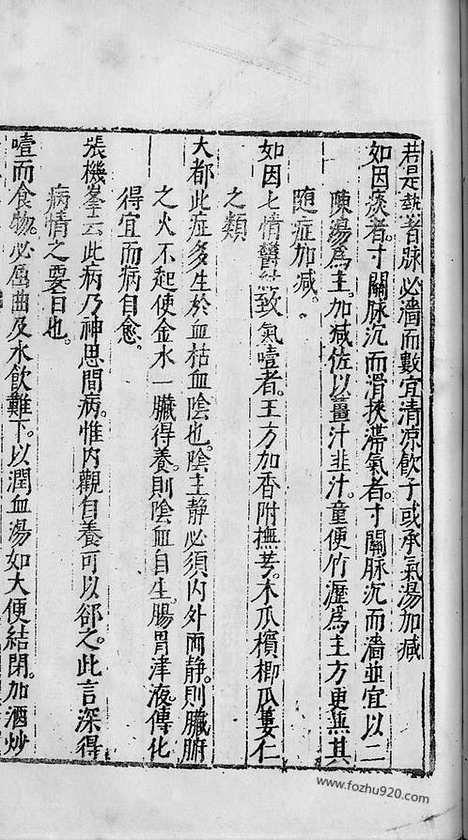 若是熱者脉必濇而數宜清凉飲子或承氣湯加減
如因痰者寸關脉沉而滑挾滯氣者寸關脉沉而濇並宜以二
陳湯爲主加減佐以薑汁韭汁童便竹瀝爲主方更無其
隨症加減
如因七情鬱結致氣噎者主方加香附撫芎木瓜檳榔瓜蔞仁
之類
大都此症多生於血枯血陰也陰主静必須内外両静則臟腑
之火不起使金水一臟得養則陰血自生腸胃津液傳化
得宜而病自愈
張機峯云此病乃神思間病惟内觀自養可以郤之此言深得
病情之要旨也
噎而食物必屈曲及水飲難下以潤血湯如大便結閉加酒炒
www.fozhu920.com